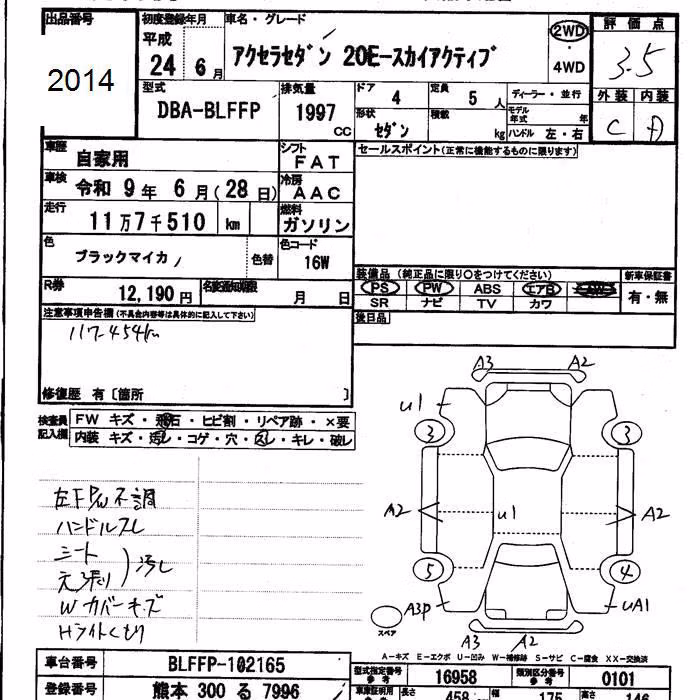 出品番号 初度登録年月 車名・グレード 2WD 評価点
平成
24年 6月 アクセラセダン 20E-スカイアクティブ ・ 3.5
2014 4WD
型式 排気量 ドア 4 定員 5人 ディーラー・並行 外装 内装
DBA-BLFFP 1997cc 形状 セダン 積載 kg モデル年式 年 C D
ハンドル 左・右
車歴 自家用 シフト FAT セールスポイント(正常に機能するものに限ります)
車検 令和 9年 6月(28日) 冷房 AAC
走行 11万7千510 km 燃料 ガソリン
色 ブラックマイカ 色替 色コード 16W
装備品 (純正品に限り○をつけてください) 新車保証書
R券 12,190円 名変通知期限 月 日 PS PW ABS エアB AW 有・無
SR ナビ TV カワ
注意事項申告欄(不具合内容等は具体的に記入して下さい) 後日品
117454km
修復歴 有〔箇所 〕
検査員記入欄 FW キズ・飛石・ヒビ割・リペア跡・×要
内装 キズ・汚レ・コゲ・穴・スレ・キレ・破レ
A3 A2
U1
3 3
左FP/W不調
ハンドルスレ A2 U1 A2
シート
天張り 汚レ
5 4
Wカバーキズ
Hライトくもり スペア A3P UA1
A3 A2
A-キズ E-エクボ U-凹み W-補修跡 S-サビ C-腐食 XX-交換済
車台番号 BLFFP-102165 型式指定番号 参考 16958 類別区分番号 参考 0101
登録番号 熊本 300 る 7996 車検証利用 長さ 458 幅 175 高さ 146